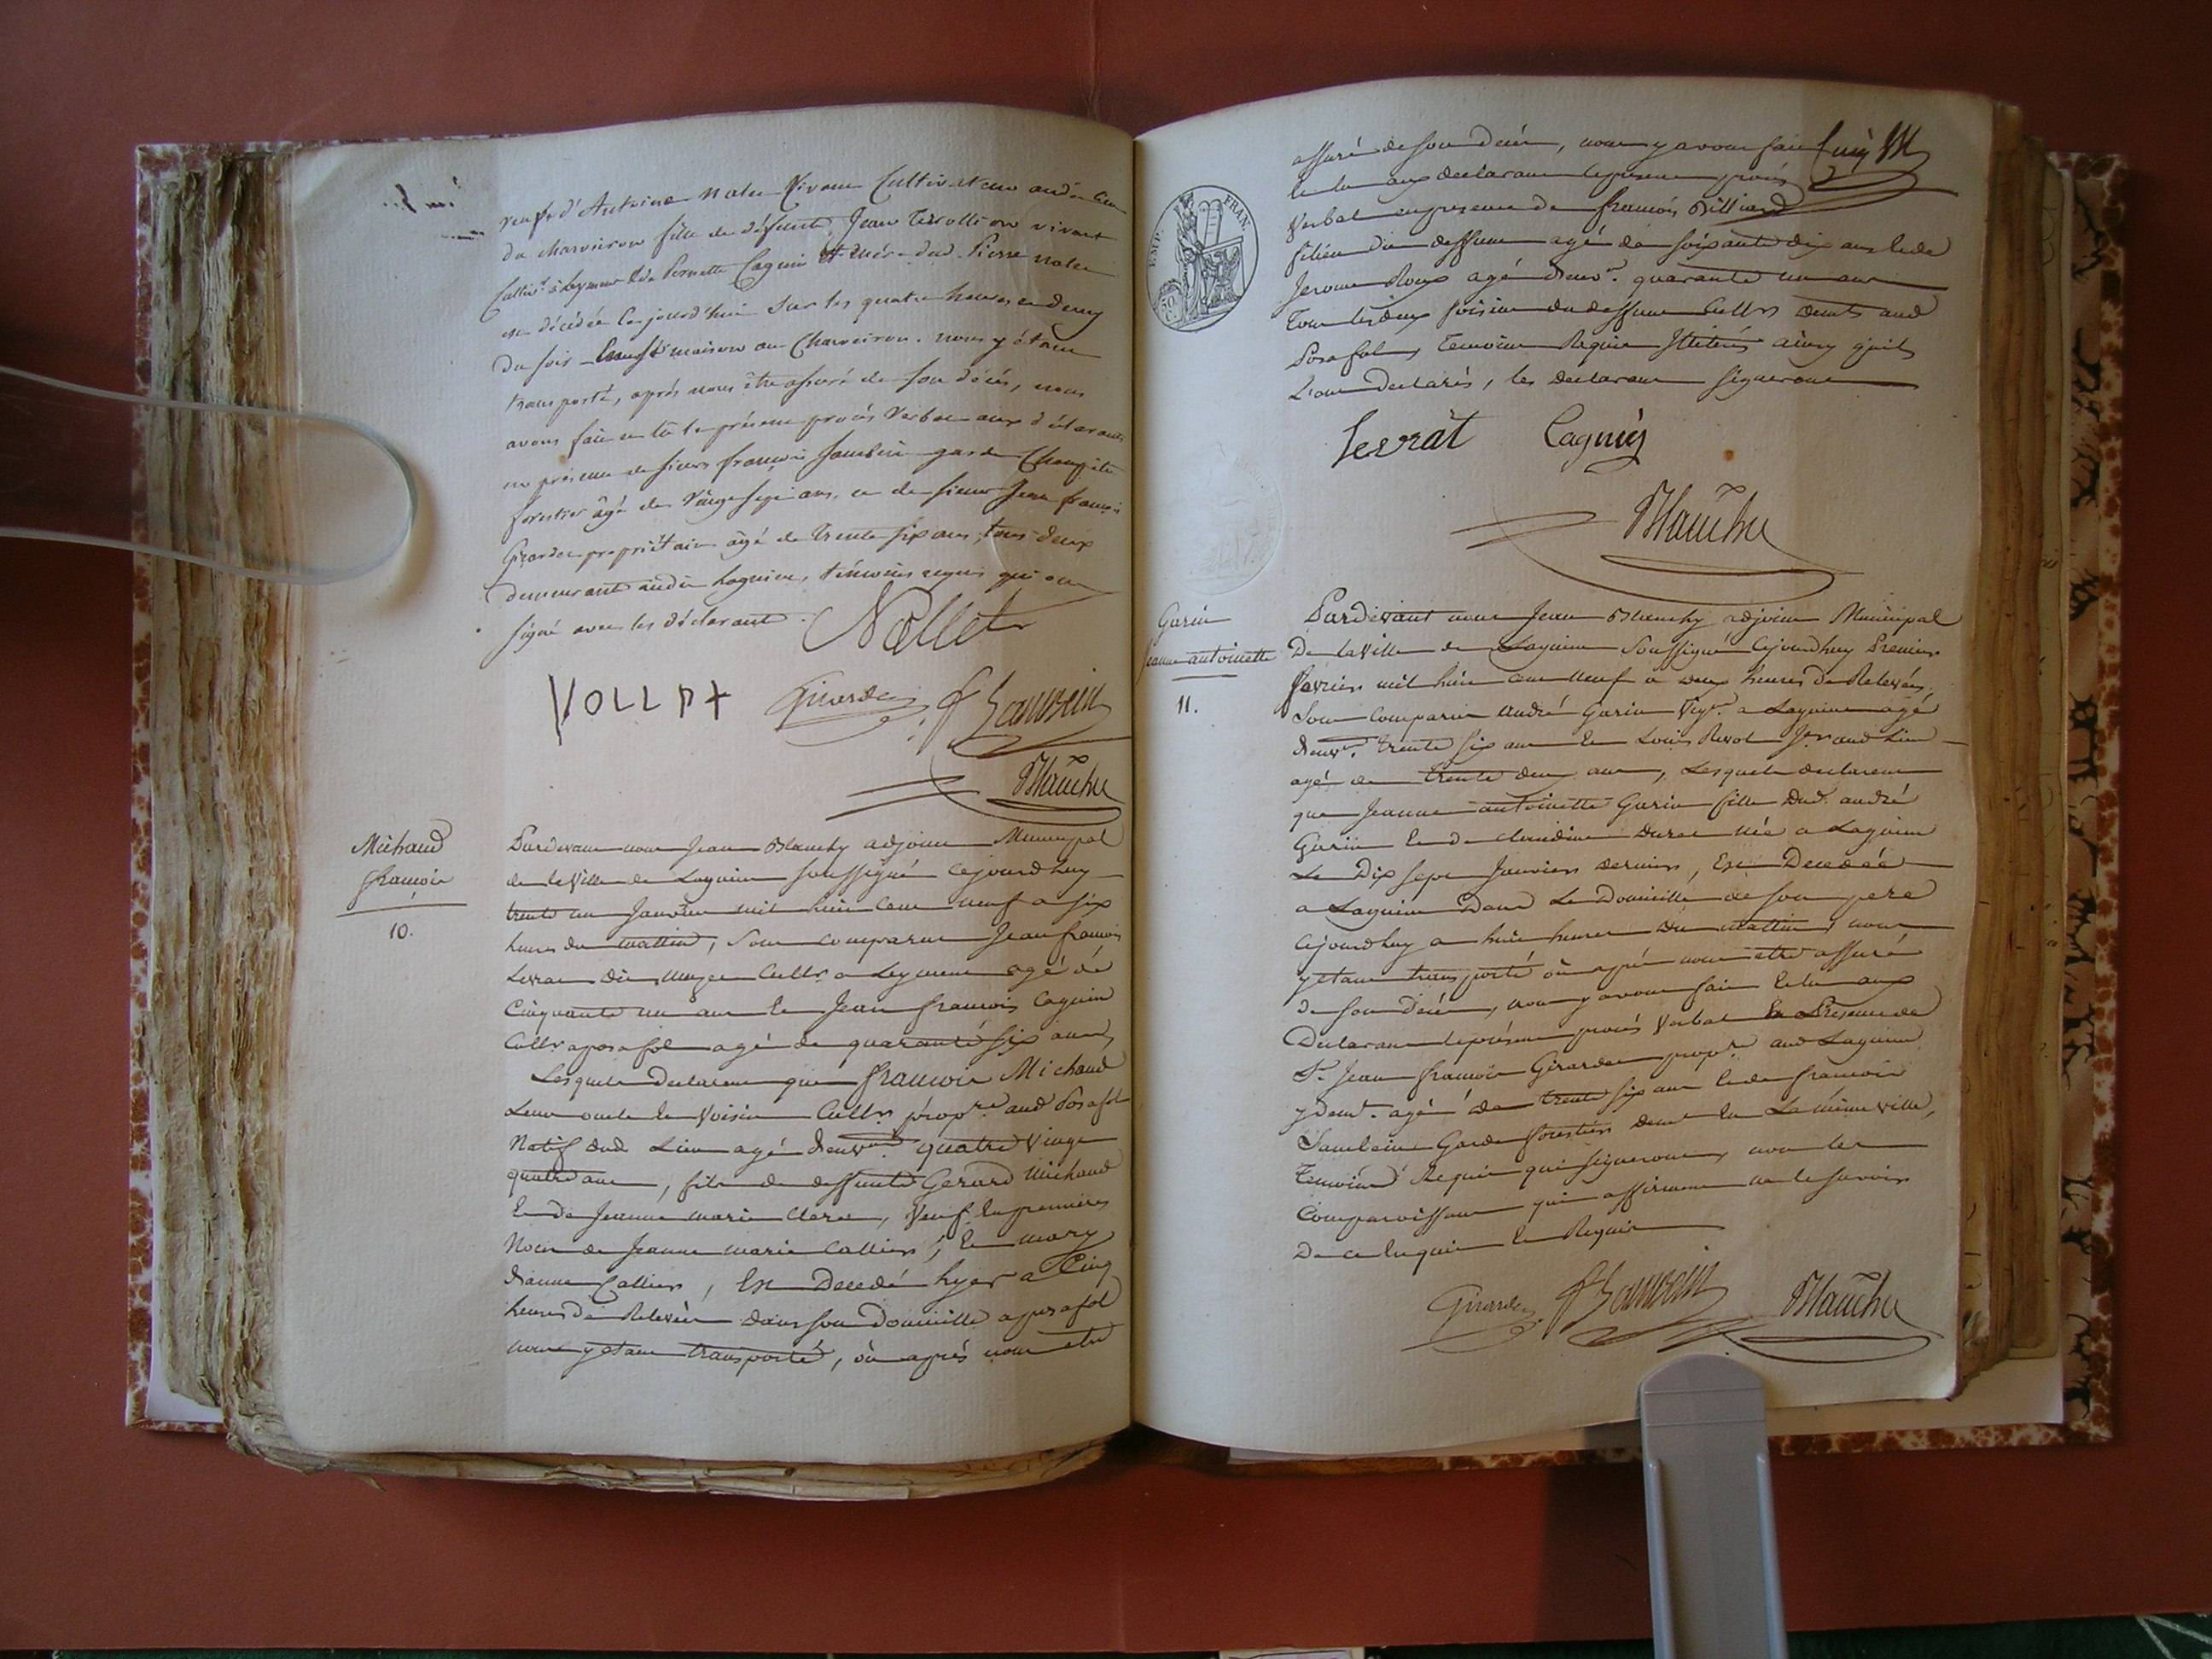 veufe d'Antoine nolle vivant Cultivateur audit lieu
du charveiron fille de défunt Jean
Cultr. à Leymens & de Pernette Cagnin & mère dud. Pierre nolle
est décédée cejourd'hui sur les quatre heures et demy
du soir maison au Charveiron. nous y étant
transporté, après nous être assuré de son décès, nous
avons fait et lu le présent procès verbal aux déclarants
en présence de sieurs françois Jambein garde Champêtre
forestier âgé de vingt sept ans, et de sieur Jean françois
Girardet propriétaire âgé de trente six ans, tous deux
demeurant audit Lagnieu, témoins requis qui ont
signé avec les déclarant.
Nollet
VOLLET
Girardet
Blanchy
Michaud
françois
10.
Pardevant nous Jean Blanchy adjoint Municipal
de la Ville de Lagnieu soussigné cejourdhuy
trente un Janvier mil huit cent neuf a six
heures du mattin, sont comparus Jean françois
Levrat dit Cultr a Leymens agé de
Cinquante un ans & Jean francois Cagnin
Cultr a posafol agé de quarante six ans
Lesquels declarent que françois Michaud
Leur oncle & voisin Cultr propre. aud Posafol
Natif dud Lieu agé denvon. quatre vingt
quatre ans, fils de deffunts Gerard Michaud
& de Jeanne marie Clerc, Veuf en premieres
Noces de Jeanne marie Callier, & mary
danne Callier, Est Decedé hyer a Cinq
heures de Relevée dans son Domicille a posafol
nous y etant transporté, où après nous etre
EMP. FRAN.
50 C.
assuré de son décès, nous y avons fait
& lu aux declarant le present procès
Verbal en presence de francois Billiard
filleu du deffunt agé de soixante dix ans & de
Jerome Roux agé denvr. quarante un ans
Tous les deux voisins du deffunt Cultrs demts aud
Posafol, Temoins Requis Illiterés ainsy qu'ils
L'ont declarés, les declarant signeront
Levrat Cagnin
Blanchy
Garin
Jeanne antoinette
11.
Pardevant nous Jean Blanchy adjoint Municipal
De la Ville de Lagnieu Soussigné Cejourdhuy Premier
fevrier mil huit cent neuf a deux heures de Relevée,
Sont Comparus André Garin Vigr. a Lagnieu agé
denvr. trente six ans & Louis Revol Jer aud Lieu
agé de trente deux ans, Lesquels declarent
que Jeanne antoinette Garin fille Dud. andré
Garin & de claudine née a Lagnieu
Le Dix sept Janvier dernier, Est Decedée
a Lagnieu Dans Le Domicille de son pere
Cejourdhuy a huit heures du mattin, nous
y etant transporté où après nous etre assuré
de son décès, nous y avons fait & lu aux
Declarant le présent procès Verbal En Presence de
Sr. Jean francois Girardet propre. aud Lagnieu
y demt. agé de trente six ans & de francois
Jambein Garde forestier demt en La même ville,
Temoins Requis qui signeront, non les
Comparoissant qui affirment ne le savoir
De ce Enquis & Requis
Girardet
Blanchy